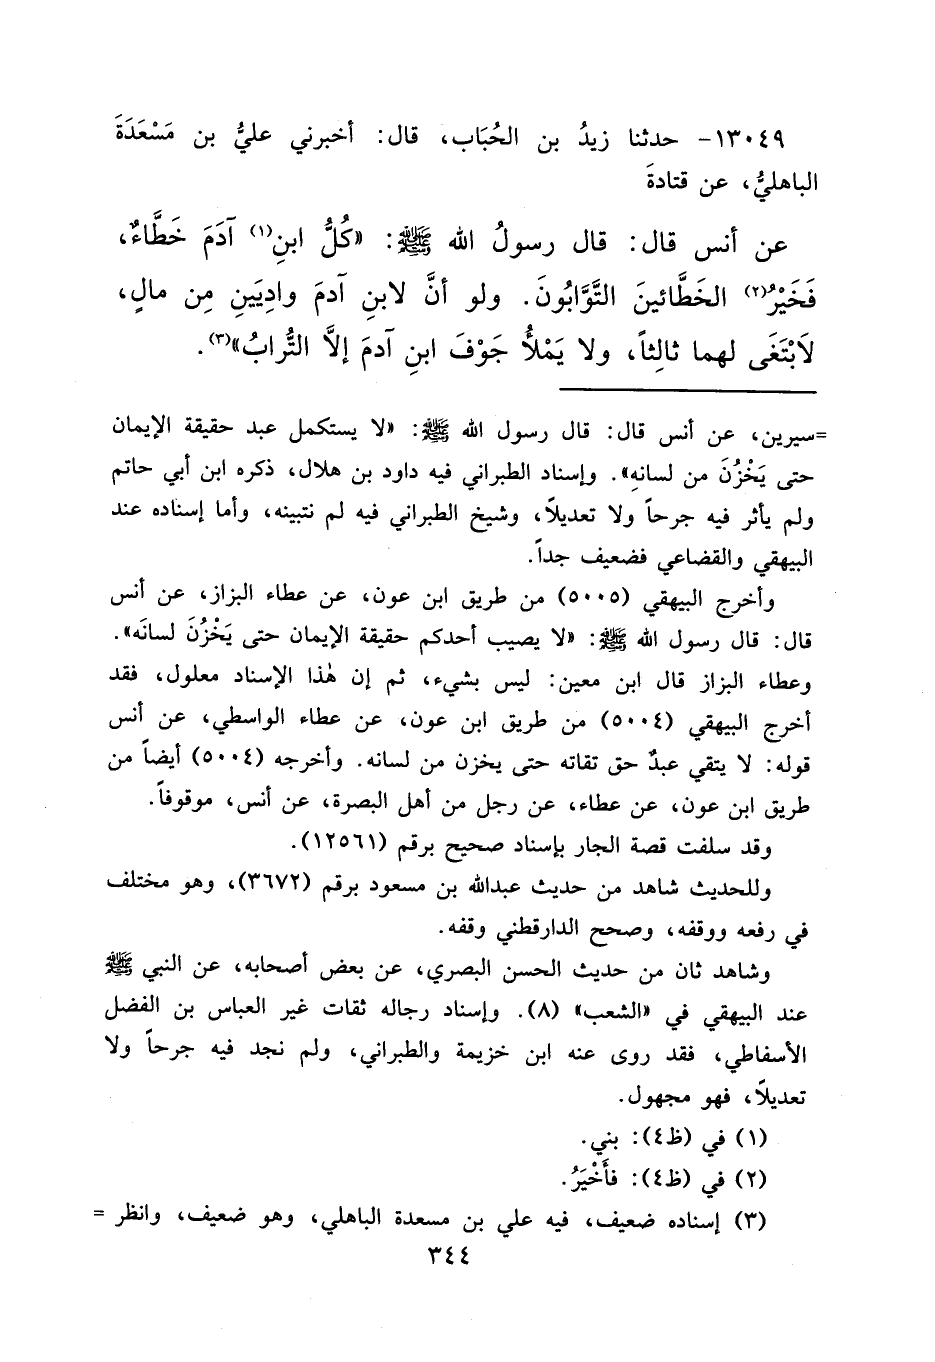 ١٣٠٤٩- حدثنا زيدُ بن الحُبَاب، قال: أخبرني عليُّ بن مَسْعَدَةَ
الباهليُّ، عن قتادةَ
عن أنس قال: قال رسولُ الله ﷺ: «كُلُّ ابنِ(١) آدَمَ خَطَّاءٌ،
فَخَيْرُ(٢) الخَطَّائينَ التَّوَّابُونَ. ولو أنَّ لابنِ آدمَ وادِيَينِ مِن مالٍ،
لَابْتَغَى لهما ثالِثاً، ولا يَمْلأُ جَوْفَ ابنِ آدمَ إلاَّ التُّرابُ»(٣).
=سيرين، عن أنس قال: قال رسول الله ﷺ: «لا يستكمل عبد حقيقة الإيمان
حتى يَخْزُنَ من لسانِه». وإسناد الطبراني فيه داود بن هلال، ذكره ابن أبي حاتم
ولم يأثر فيه جرحاً ولا تعديلاً، وشيخ الطبراني فيه لم نتبينه، وأما إسناده عند
البيهقي والقضاعي فضعيف جداً.
وأخرج البيهقي (٥٠٠٥) من طريق ابن عون، عن عطاء البزاز، عن أنس
قال: قال رسول الله ﷺ: «لا يصيب أحدكم حقيقة الإيمان حتى يَخْزُنَ لسانَه».
وعطاء البزاز قال ابن معين: ليس بشيء، ثم إن هٰذا الإسناد معلول، فقد
أخرج البيهقي (٥٠٠٤) من طريق ابن عون، عن عطاء الواسطي، عن أنس
قوله: لا يتقي عبدٌ حق تقاته حتى يخزن من لسانه. وأخرجه (٥٠٠٤) أيضاً من
طريق ابن عون، عن عطاء، عن رجل من أهل البصرة، عن أنس، موقوفاً.
وقد سلفت قصة الجار بإسناد صحيح برقم (١٢٥٦١).
وللحديث شاهد من حديث عبدالله بن مسعود برقم (٣٦٧٢)، وهو مختلف
في رفعه ووقفه، وصحح الدارقطني وقفه.
وشاهد ثان من حديث الحسن البصري، عن بعض أصحابه، عن النبي ﷺ
عند البيهقي في «الشعب» (٨). وإسناد رجاله ثقات غير العباس بن الفضل
الأسفاطي، فقد روى عنه ابن خزيمة والطبراني، ولم نجد فيه جرحاً ولا
تعديلاً، فهو مجهول.
(١) في (ظ٤): بني.
(٢) في (ظ٤): فأَخْيَرُ.
(٣) إسناده ضعيف، فيه علي بن مسعدة الباهلي، وهو ضعيف، وانظر =
٣٤٤